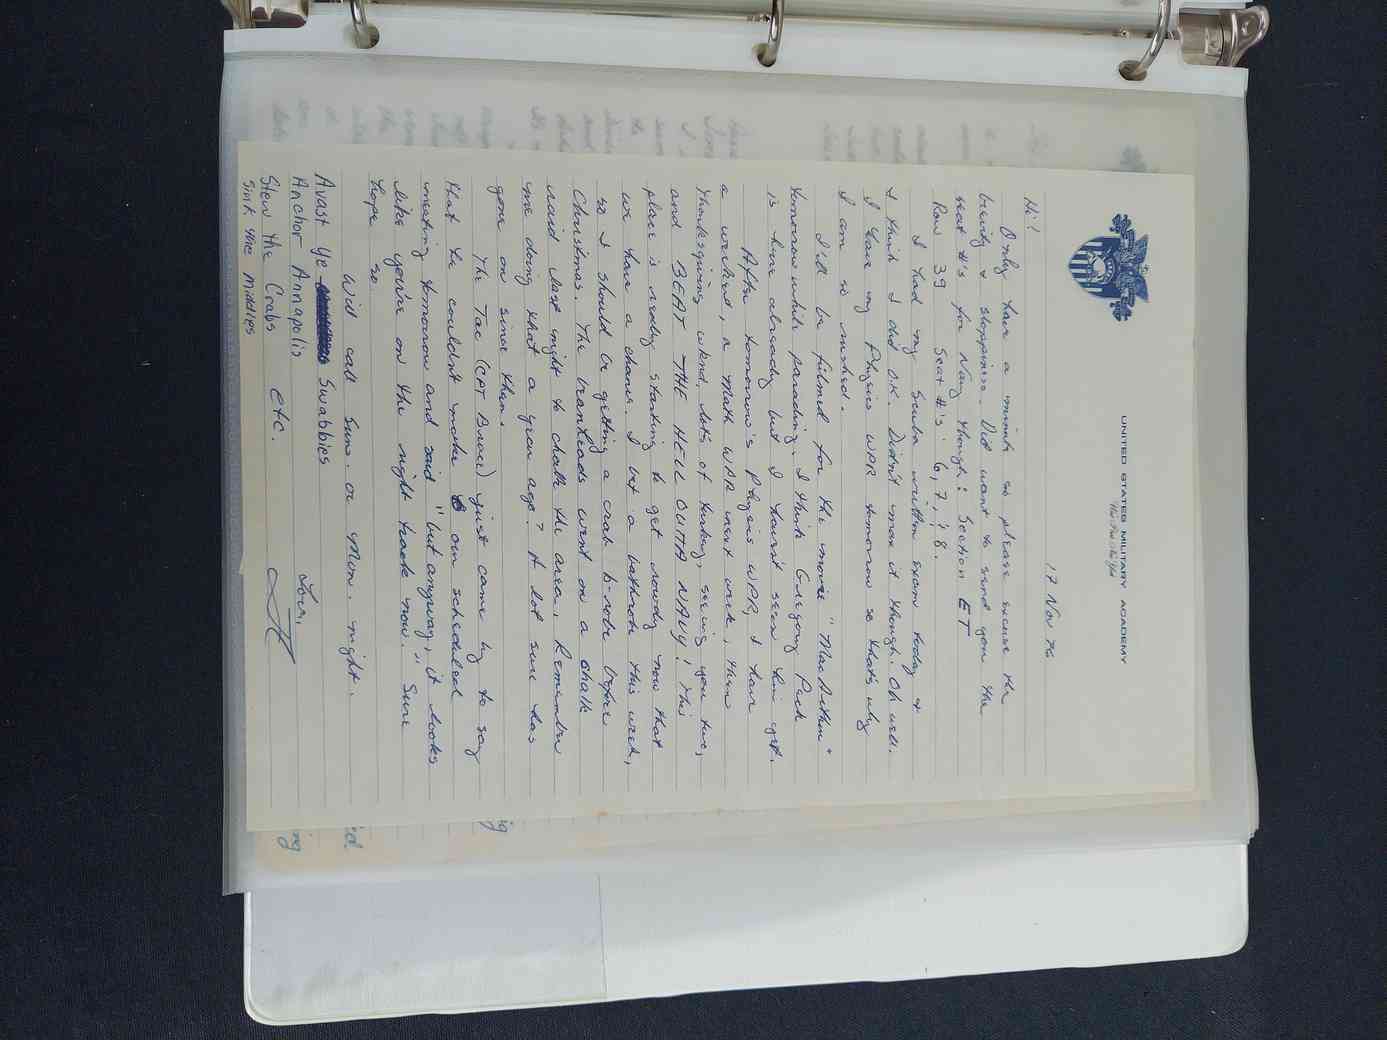 UNITED STATES MILITARY ACADEMY
West Point, New York
17 Nov 76
Hi!
Only have a minute so please excuse the
brevity & sloppiness. Did want to send you the
seat #'s for Navy though: Section ET
Row 39 Seat #'s: 6, 7, & 8.
I had my Scuba written exam today &
I think I did O.K. Didn't max it though. Oh well.
I have my Physics WPR tomorrow so that's why
I am so rushed.
I'll be filmed for the movie "MacArthur"
tomorrow while parading. I think Gregory Peck
is here already but I haven't seen him yet.
After tomorrow's Physics WPR, I have
a weekend, a Math WPR next week, then
Thanksgiving wkend, lots of turkey, seeing you two,
and BEAT THE HELL OUTTA NAVY! This
place is really starting to get rowdy now that
we have a chance. I bet a bathrobe this week,
so I should be getting a crab b-robe before
Christmas. The tankheads went on a chalk
raid last night to chalk the area. Remember
me doing that a year ago? A lot sure has
gone on since then.
The Tac (CPT Bruce) just came by to say
that he couldn't make our scheduled
meeting tomorrow and said "but anyway, it looks
like you're on the right track now." Sure
hope so
Will call Sun. or Mon. night.
Avast Ye Swabbies
Anchor Annapolis
Stew the Crabs etc.
Sink the Middies
Love,